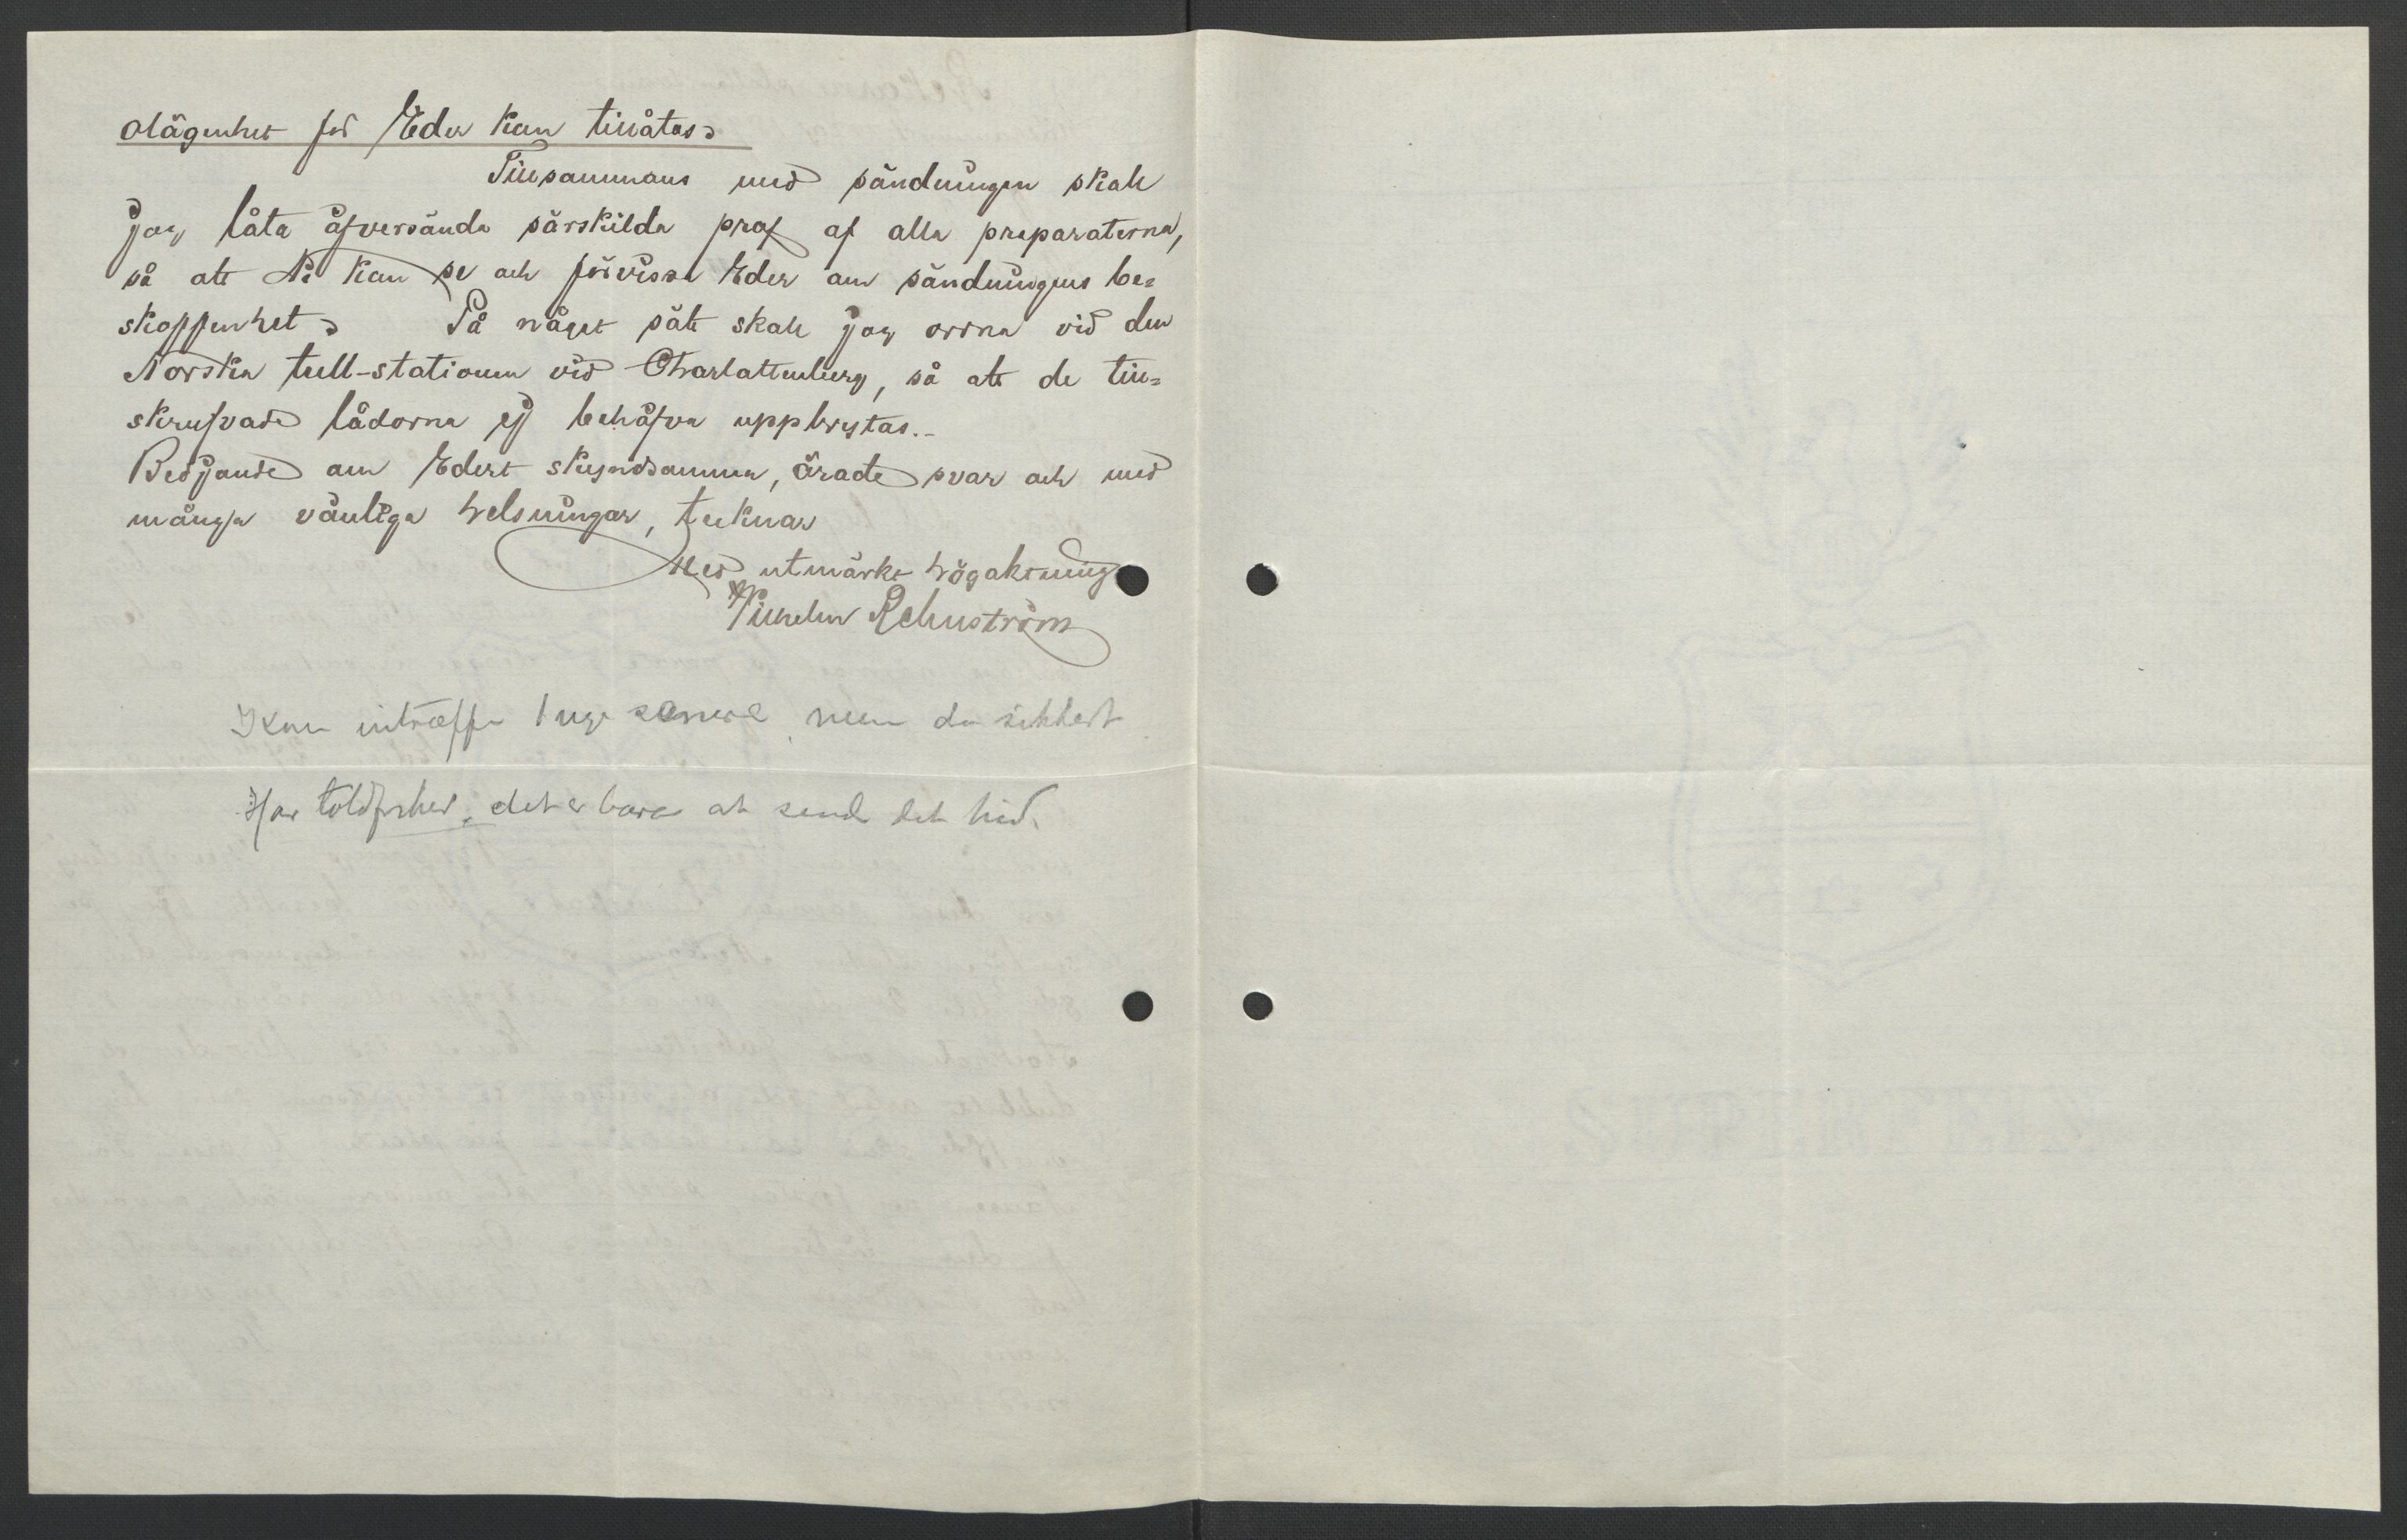 olägenhet för Eder kan tillåtas.
Tillsammans med sändningen skall
jag låta öfversända särskilda prof af alla preparaterna,
så att Ni kan se och förvissa Eder om sändningens be=
skaffenhet. På något sätt skall jag orrna vid den
Norska tull-stationen vid Charlottenberg, så att de till=
skrufvade lådorna ej behöfva uppbrytas.-
Bedjande om Eder skyndsamma, ärade svar och med
många vänliga helsningar, tecknar
Med utmärkt högaktning
Wilhelm Rehnström
Kan inträffe 1 uge senere, men da sikkert
Har toldfrihed, det er bare at send det hid.